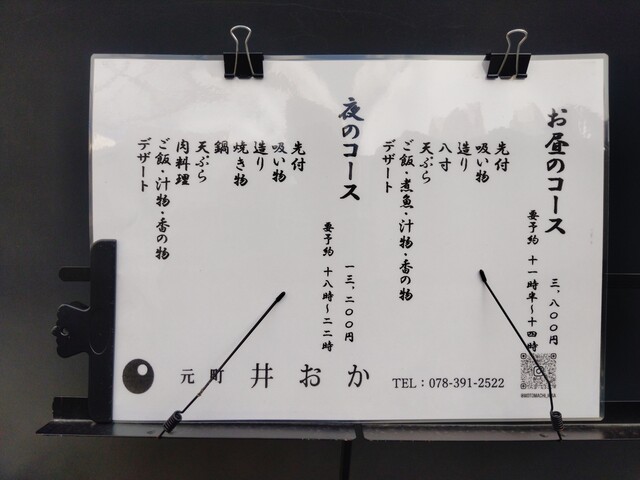 お昼のコース
三、八〇〇円
要予約 十一時半〜十四時
先付
吸い物
造り
八寸
天ぷら
ご飯・煮魚・汁物・香の物
デザート
夜のコース
一三、二〇〇円
要予約 十八時〜二二時
先付
吸い物
造り
焼き物
鍋
天ぷら
肉料理
ご飯・汁物・香の物
デザート
元町 井おか
TEL：078-391-2522